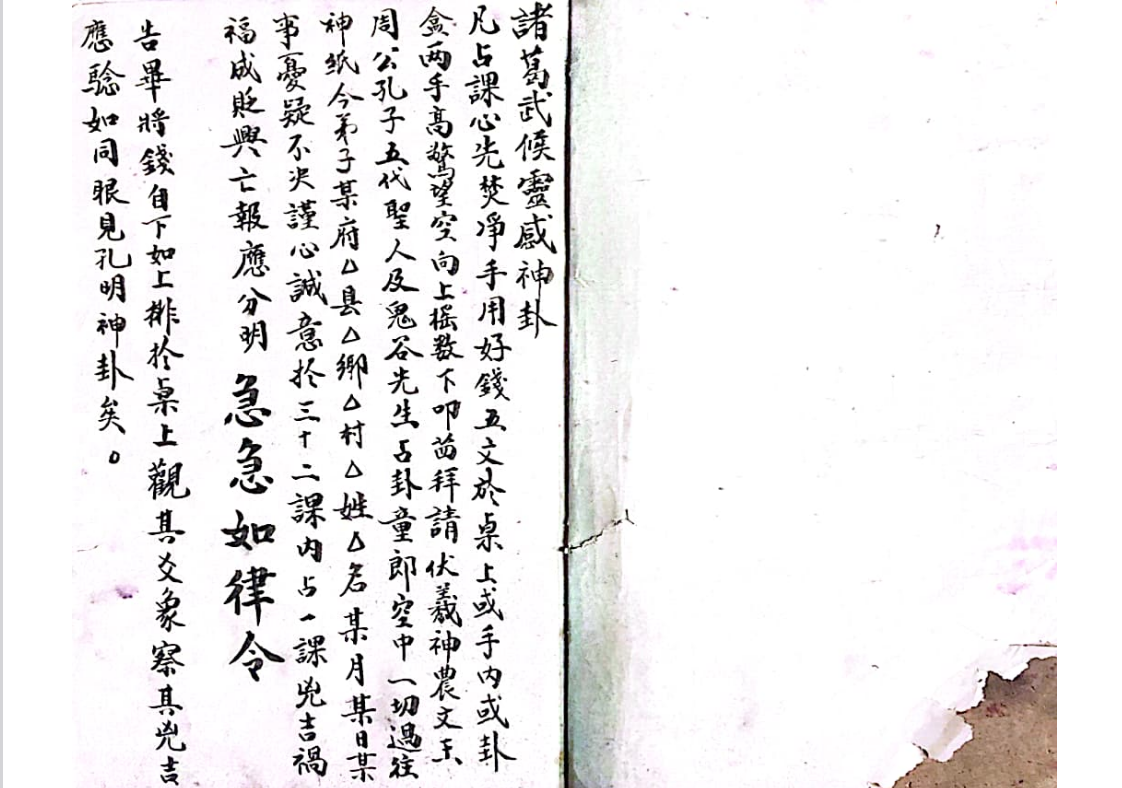 諸葛武候靈感神卦
凡占課心先焚淨手用好錢五文於桌上或手內或卦
盒两手高驚望空向上摇数下叩齒拜請伏羲神農文王
周公孔子五代聖人及鬼谷先生占卦童郎空中一切過往
神紙今弟子某府△县△鄉△村△姓△名某月某日某
事憂疑不决謹心誠意扵三十二課內占一課兇吉禍
福成貶興亡報應分明 急急如律令
告畢將錢自下如上排扵桌上觀其爻象察其兇吉
應驗如同眼見孔明神卦矣。